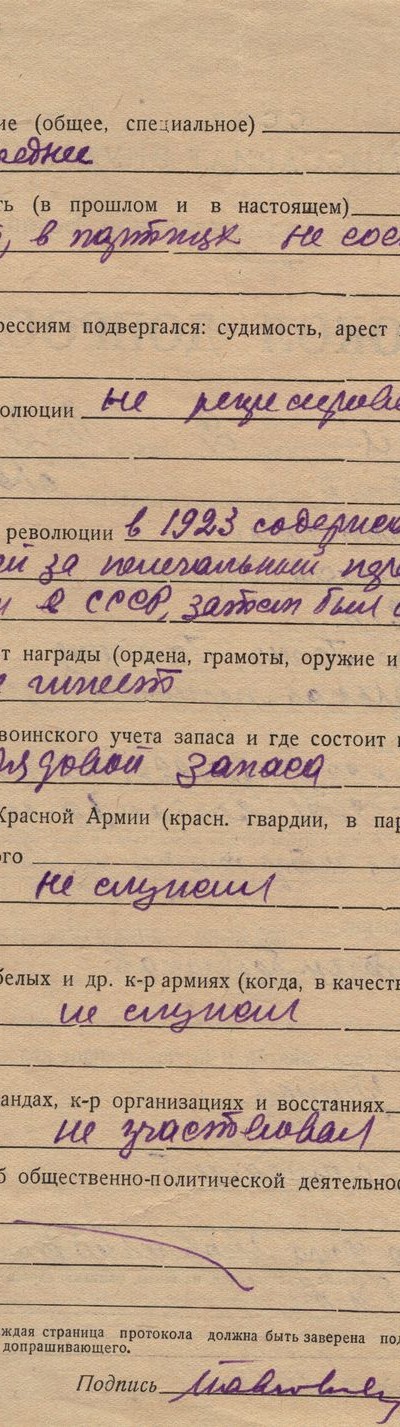 ие (общее, специальное)
реднее
ть (в прошлом и в настоящем)
в партиях не сос
рессиям подвергался: судимость, арест
олюции не репрессирова
революции в 1923 содержа
ей за нелегальный пере
и в СССР, затем был
т награды (ордена, грамоты, оружие и
е имеет
воинского учета запаса и где состоит
рядовой запаса
Красной Армии (красн. гвардии, в пар
го
не служил
белых и др. к-р армиях (когда, в качест
не служил
андах, к-р организациях и восстаниях
не участвовал
б общественно-политической деятельнос
ждая страница протокола должна быть заверена под
допрашивающего.
Подпись